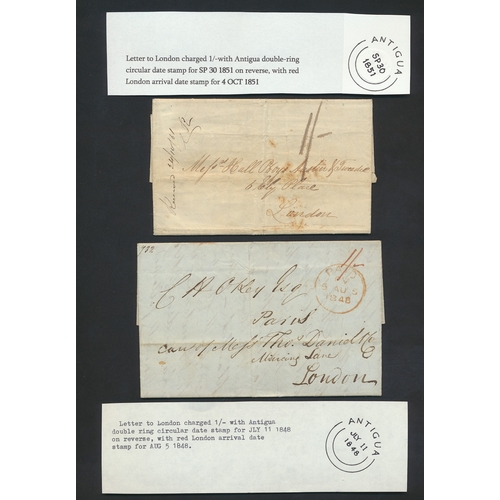 Letter to London charged 1/-with Antigua double-ring
circular date stamp for SP 30 1851 on reverse, with red
London arrival date stamp for 4 OCT 1851
ANTIGUA
SP30
1851
1/-
Messrs Hall
6 Ely Place
London
1/-
PAID
AU 5
1848
C H Okey Esq
Paris
care of Messrs Thos. Daniel & Co
Mincing Lane
London
Letter to London charged 1/- with Antigua
double ring circular date stamp for JLY 11 1848
on reverse, with red London arrival date
stamp for AUG 5 1848.
ANTIGUA
JLY 11
1848